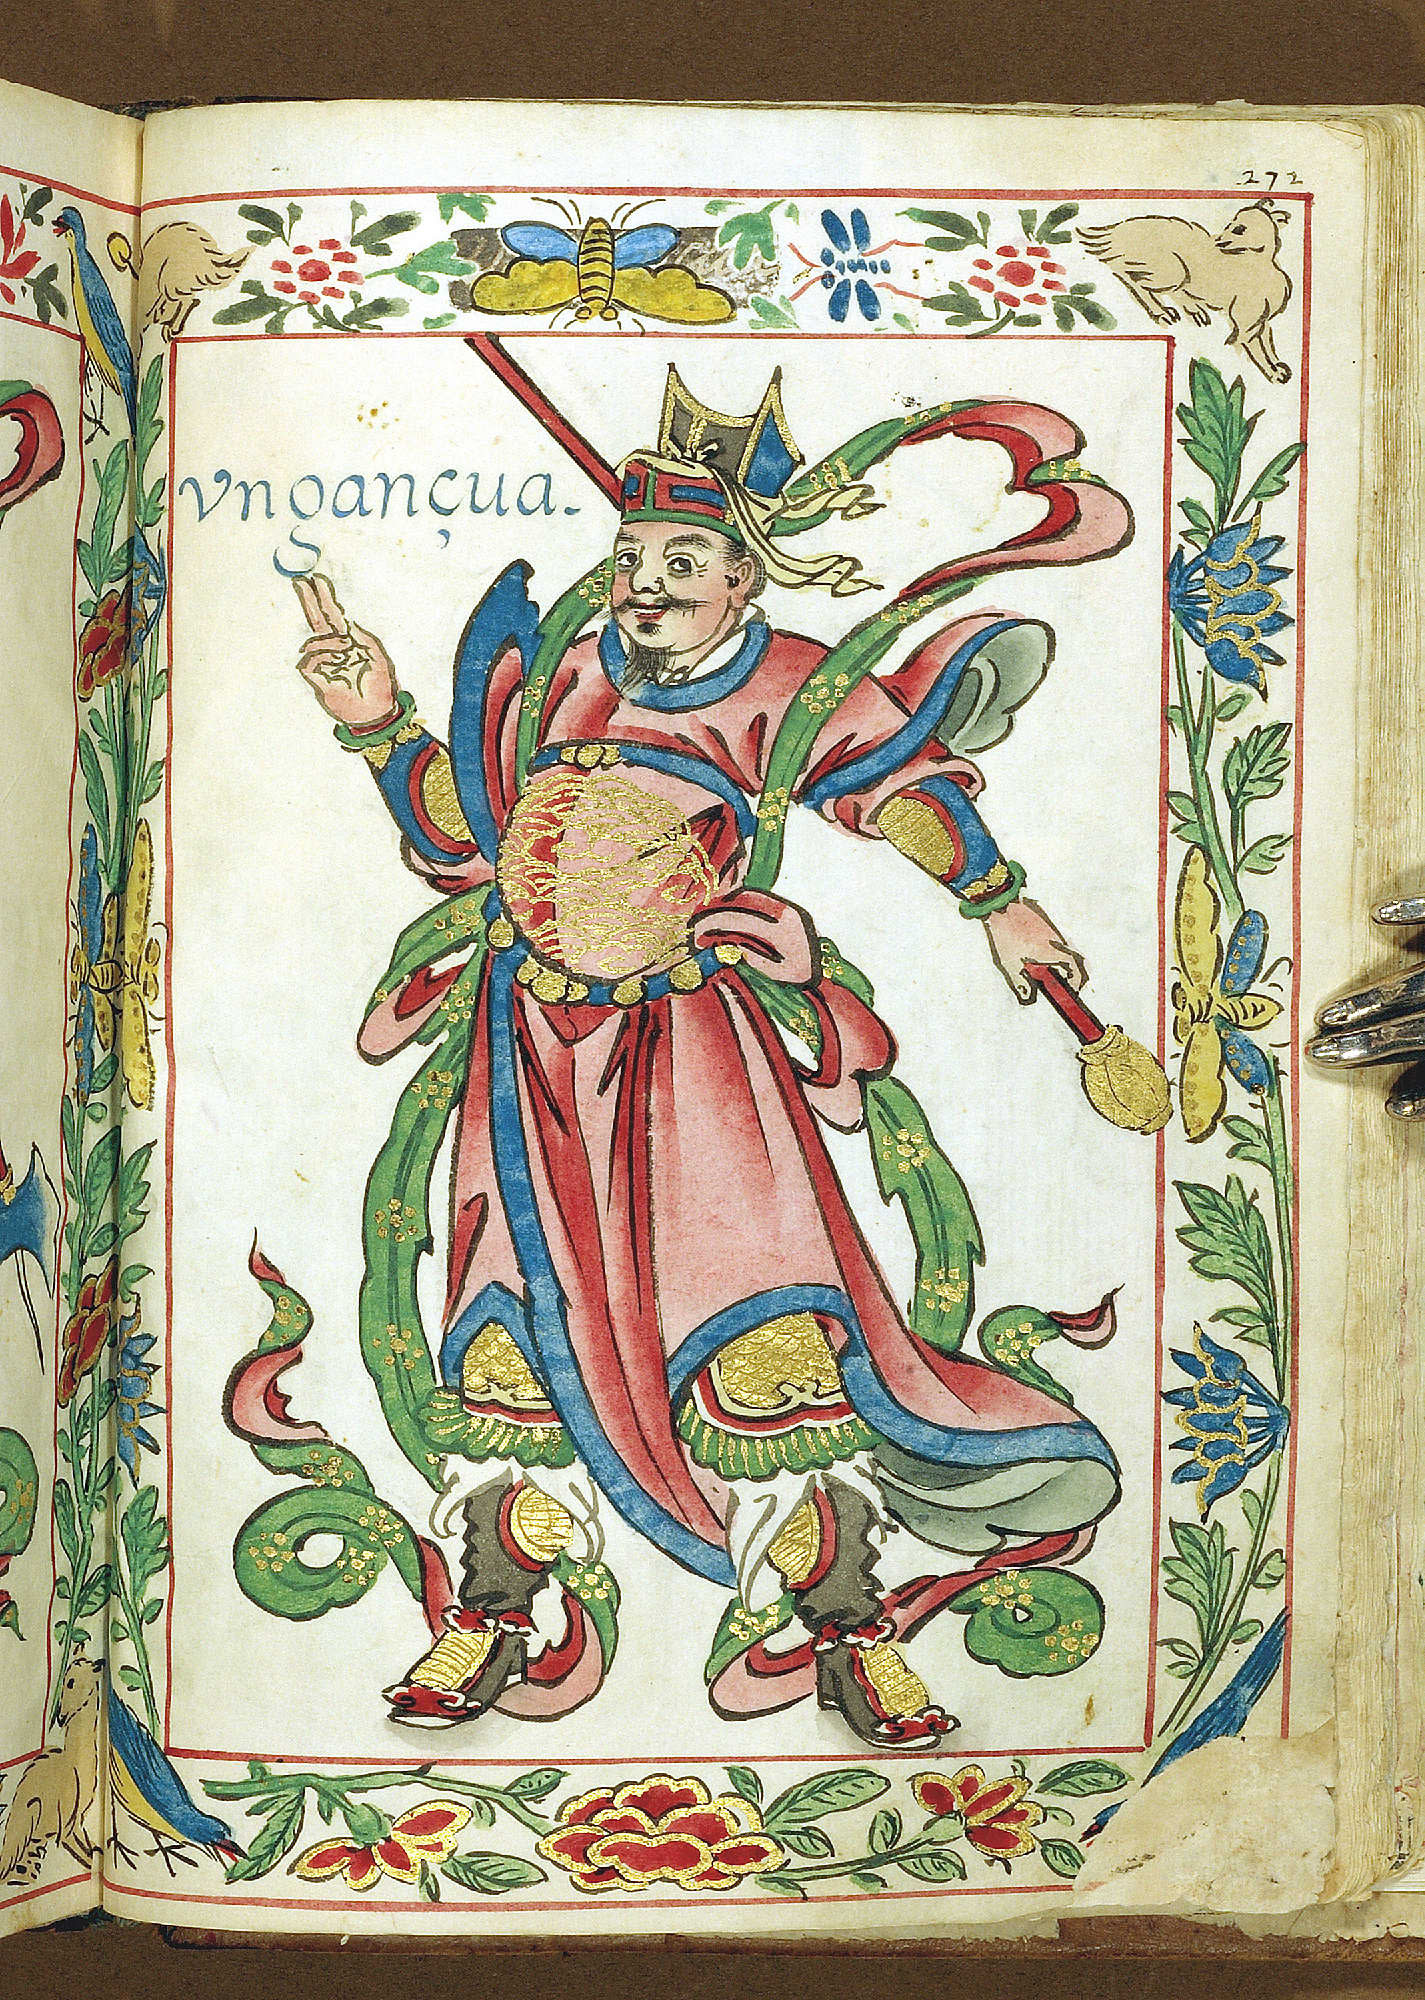 272
vngançua.